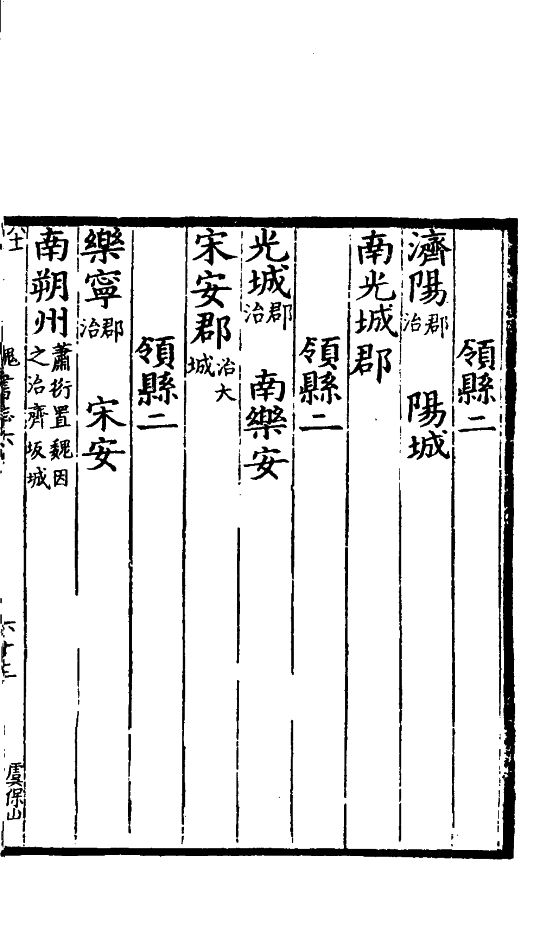 領縣二
濟陽郡治 陽城
南光城郡
領縣二
光城郡治 南樂安
宋安郡治大城
領縣二
樂寧郡治 宋安
南朔州蕭衍置魏因之治齊坂城
六十三
虞保山